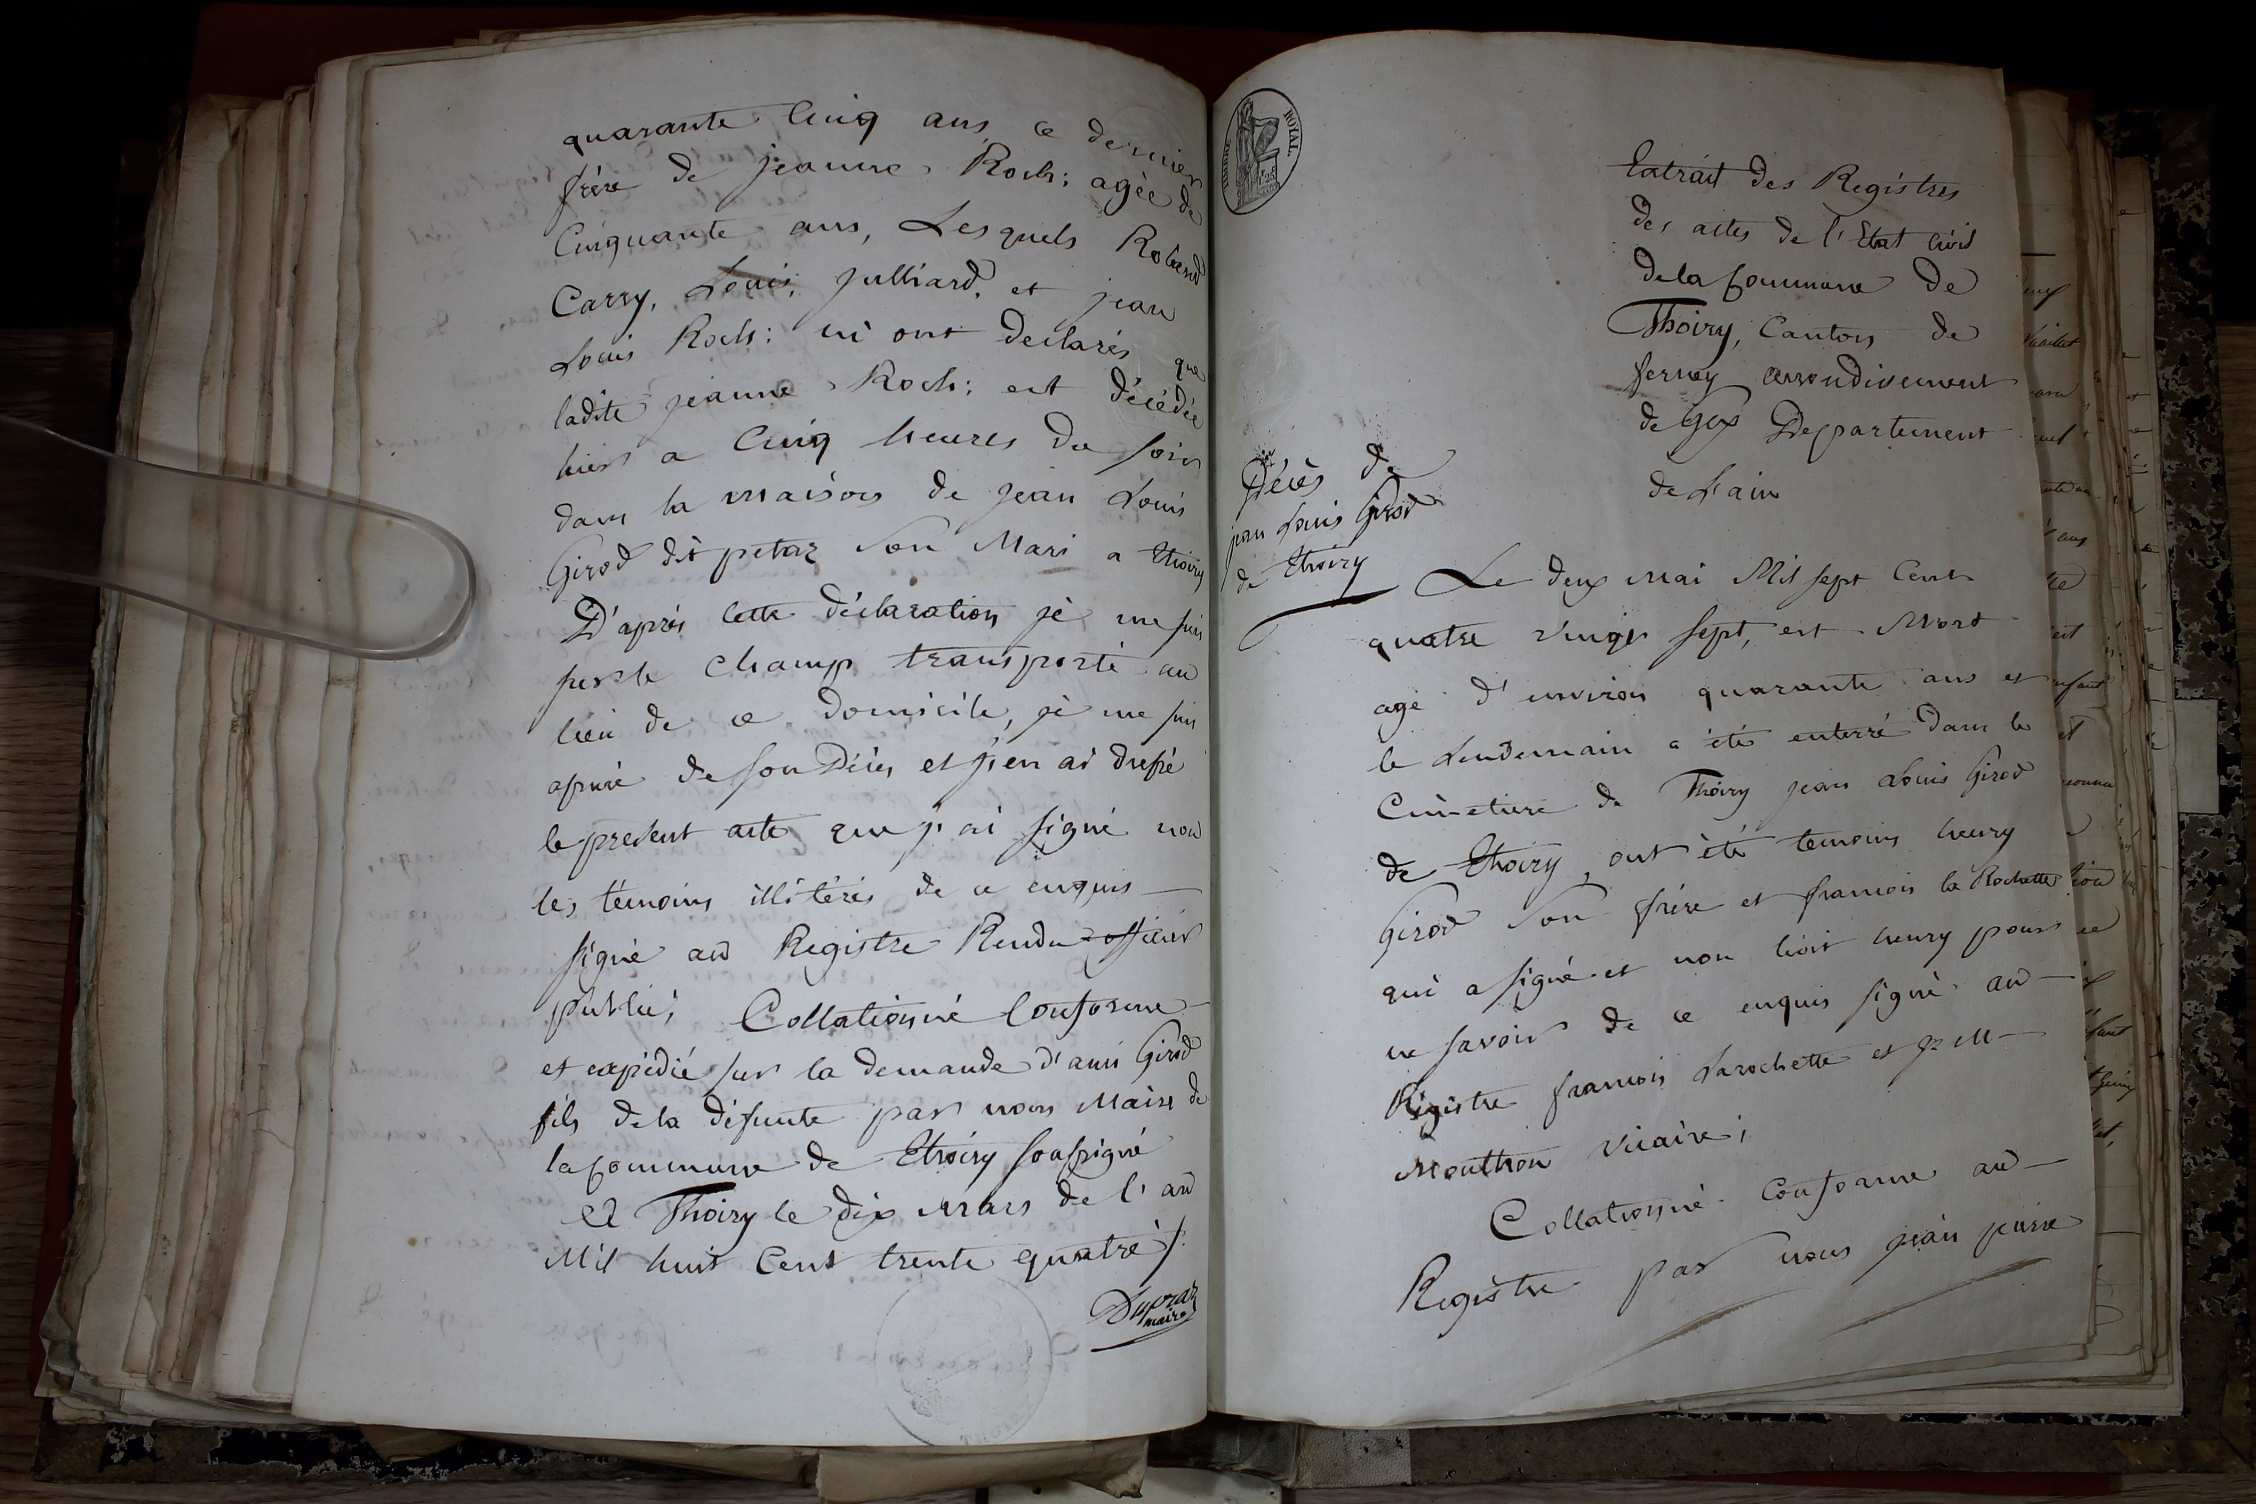 quarante Cinq ans ce dernier
frère de jeanne Roch: agée de
Cinquante ans, Lesquels Roland
Carry, Louis Julliard, et jean
Louis Roch: m'ont declarés que
ladite jeanne Roch: est décédée
hier a Cinq heures du soir
dans la maison de jean Louis
Girod dit petaz son Mari a thoiry
D'après cette déclaration je me suis
sur le champ transporté au
lieu de ce domicile, je me suis
assuré de son Décès et j'en ai dressé
le present acte que j'ai signé non
les témoins illitérés de ce enquis
signé au Registre Rendu officier
public; Collationné Conforme
et expédié sur la demande d'ami Girod
fils de la défunte par nous Maire de
la commune de thoiry soussigné
a Thoiry le dix Mars de l'an
Mil huit Cent trente quatre /.
Dupraz
maire
TIMBRE ROYAL
Extrait des Registres
des actes de l'Etat civil
de la Commune de
Thoiry, Canton de
ferney arrondissement
de Gex Departement
de L'ain
Décès de
jean Louis Girod
de thoiry
Le deux mai Mil sept Cent
quatre vingt sept, est Mort
agé d'environ quarante ans et
le Lendemain a été enterré dans le
Cimetiere de Thoiry jean Louis Girod
de thoiry, ont été temoins henry
Girod son frère et francois la Rochette
qui a signé et non ledit henry pour
ne savoir de ce enquis signé au
Régistre francois Larochette et
Mouthon vicaire;
Collationné Conforme au
Registre par nous jean pierre